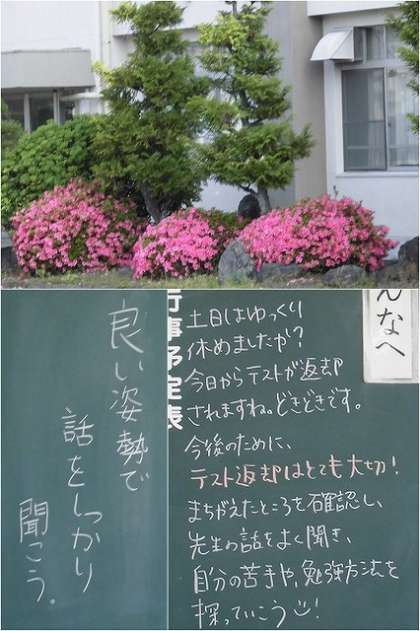 良い姿勢で
話をしっかり
聞こう。
行事予定表
んなへ
土日はゆっくり
休めましたか?
今日からテストが返却
されますね。どきどきです。
今後のために、
テスト返却はとても大切!
まちがえたところを確認し、
先生の話をよく聞き、
自分の苦手や、勉強方法を
探っていこう!